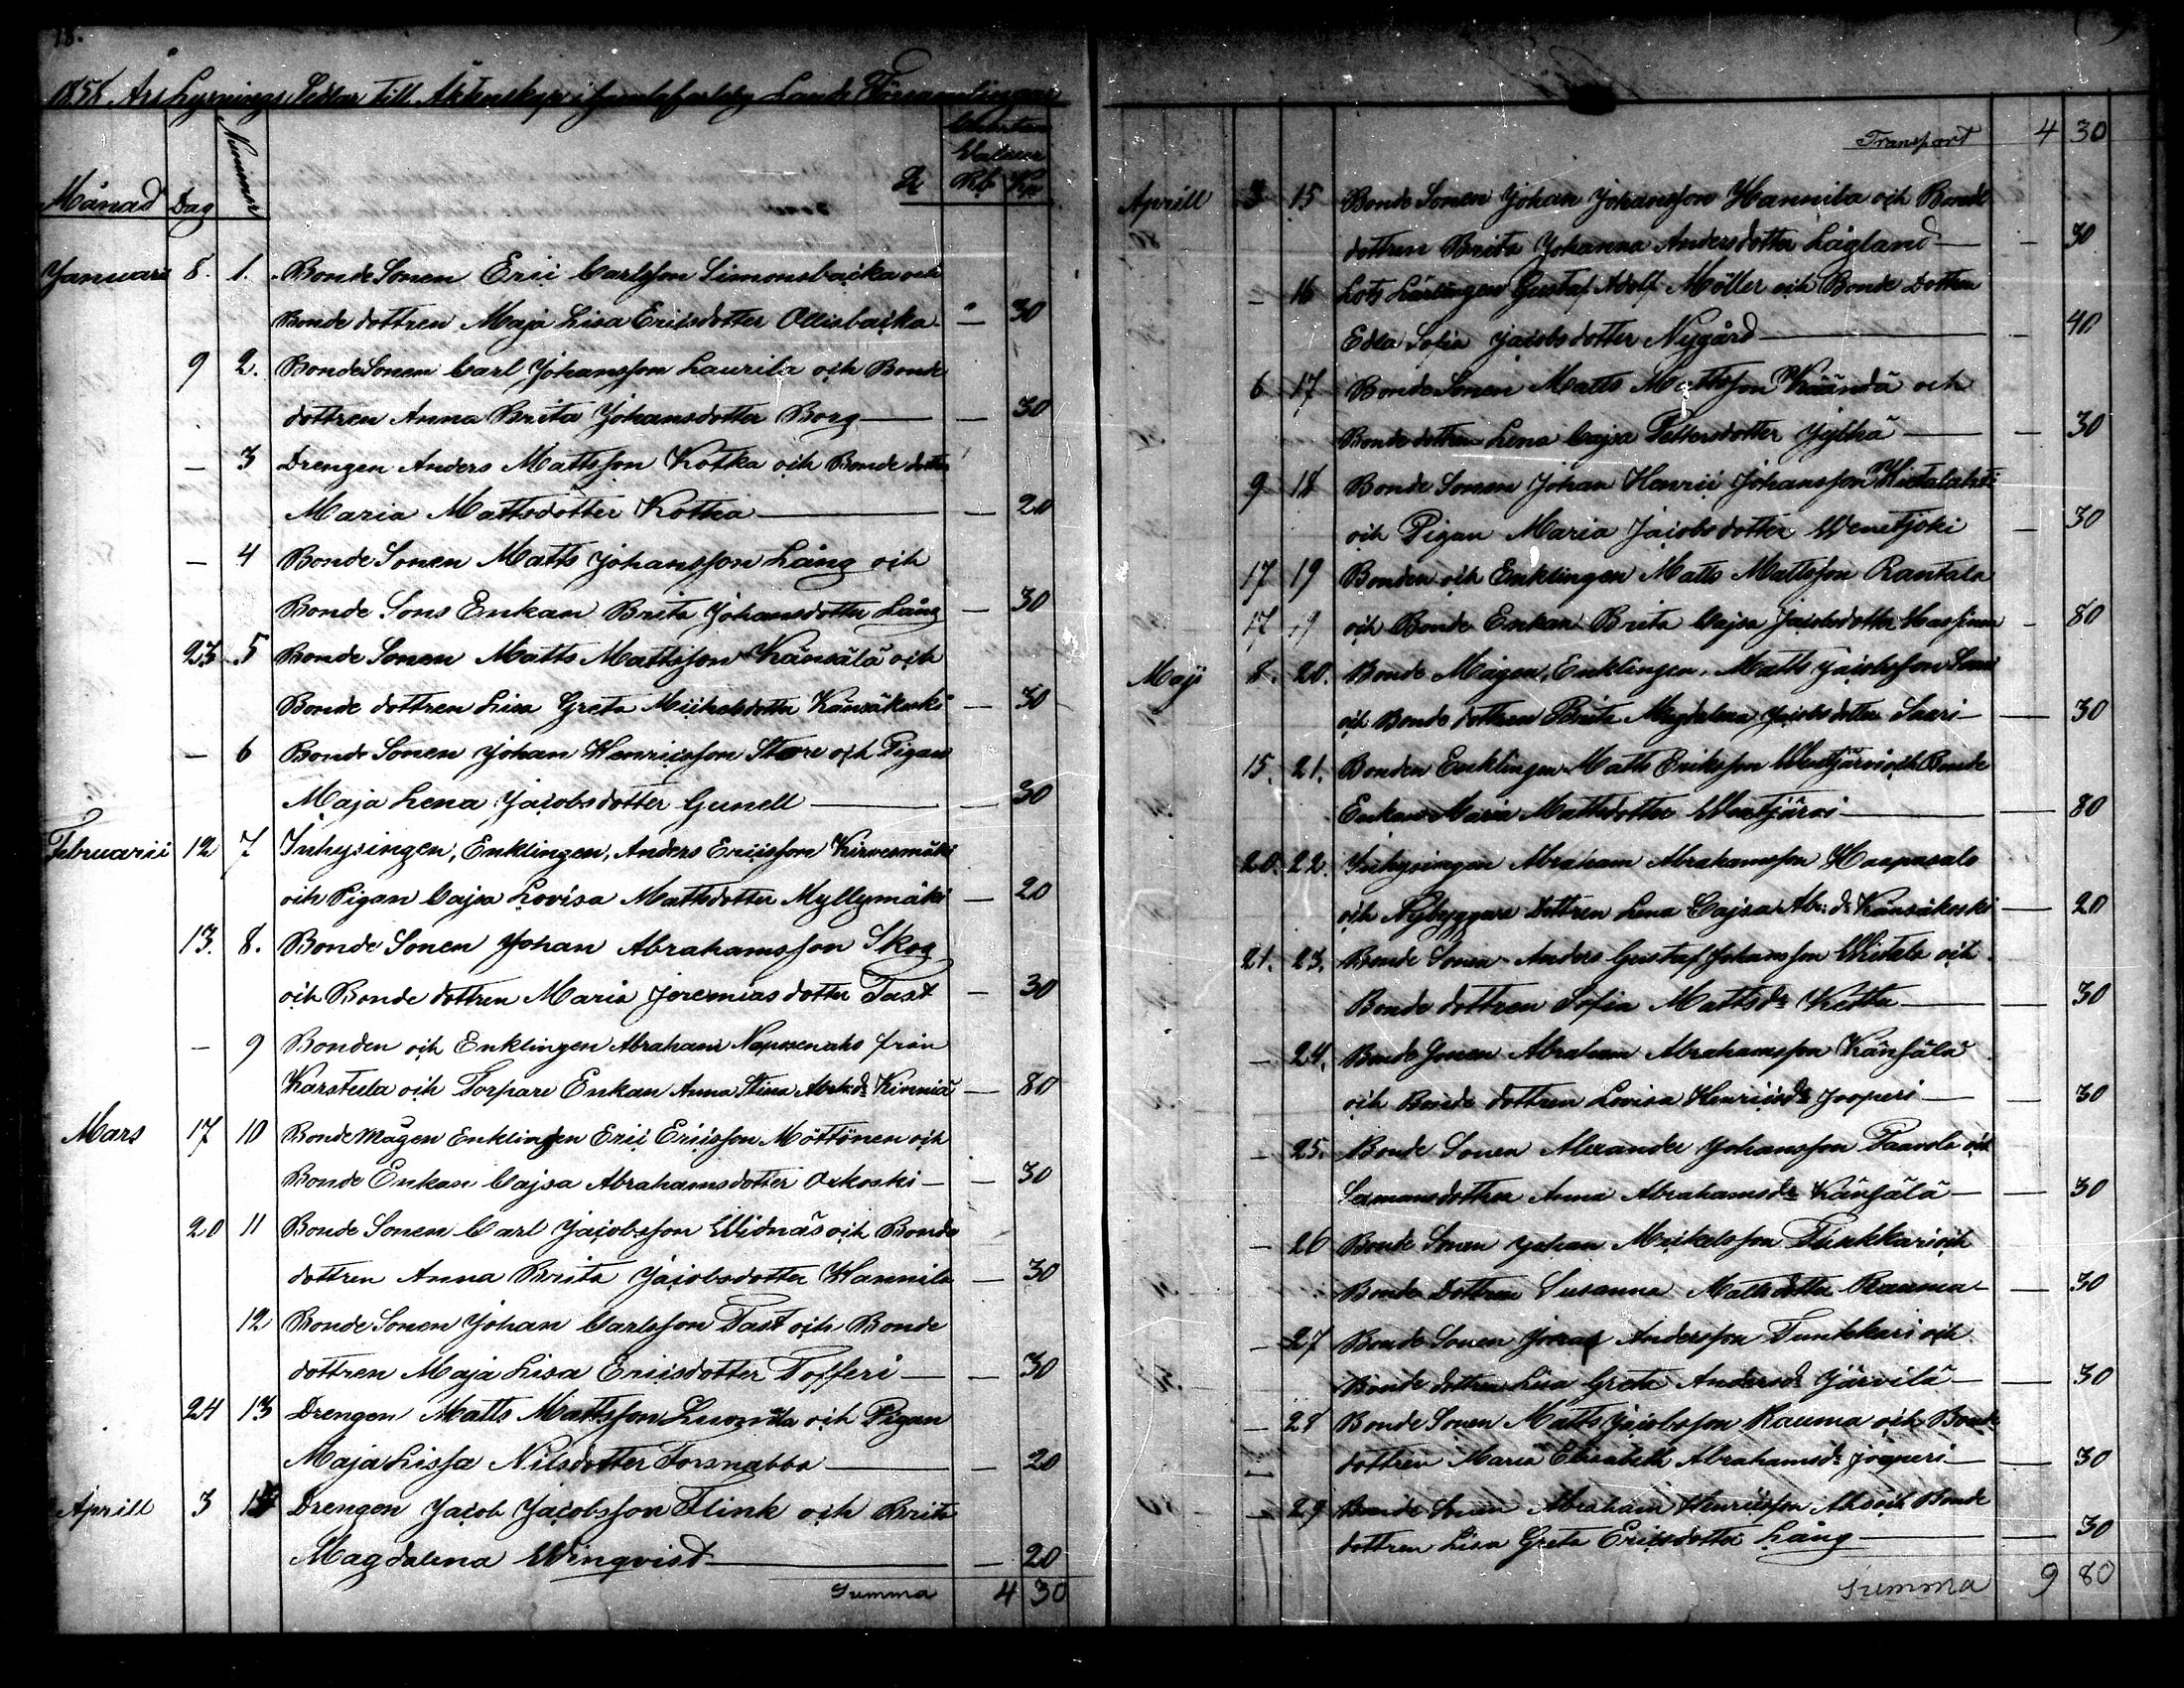 18.
1858 Års Lysnings Sedlar till Äktenskap i Gamlakarleby Lands Församlingar
Månad Dag Nummer Rb Kp
Januari 8. 1. Bonde Sonen Eric Carlsson Simonsbacka och
Bonde dottren Maja Lisa Ericsdotter Ollisbacka — 30
9 2. Bonde Sonen Carl Johansson Laurila och Bonde
dottren Anna Brita Johansdotter Borg — 30
— 3 Drengen Anders Mattsson Kotka och Bonde dottr
Maria Mattsdotter Kotka — 20
— 4 Bonde Sonen Matts Johansson Lång och
Bonde Sons Enkan Brita Johansdotter Lång — 30
23 5 Bonde Sonen Matts Mattsson Känsälä och
Bonde dottren Lisa Greta Michelsdotter Känsäkoski — 30
— 6 Bonde Sonen Johan Henricsson Store och Pigan
Maja Lena Jacobsdotter Gunell — 30
Februarii 12 7 Inhysingen, Enklingen, Anders Ericsson Kirvesmäki
och Pigan Cajsa Lovisa Mattsdotter Myllymäki — 20
13. 8. Bonde Sonen Johan Abrahamsson Skog
och Bonde dottren Maria Jeremias dotter Tast — 30
— 9 Bonden och Enklingen Abraham från
Karstula och Torpare Enkan Anna Stina Abrah:dr Kinniä — 80
Mars 17 10 Bonde Mågen Enklingen Eric Ericsson Möttönen och
Bonde Enkan Cajsa Abrahamsdotter Oxkoski — 30
20 11 Bonde Sonen Carl Jacobsson Widnäs och Bonde
dottren Anna Brita Jacobsdotter Hannila — 30
12 Bonde Sonen Johan Carlsson Tast och Bonde
dottren Maja Lisa Ericsdotter Tofferi — 30
24 13 Drengen Matts Mattsson och Pigan
Maja Lissa Nilsdotter Forsnabba — 20
Aprill 3 Drengen Jacob Jacobsson Flink och Brita
Magdalena Winqvist — 20
Summa 4 30
Transport 4 30
Aprill 3 15 Bonde Sonen Johan Johansson Hannila och Bonde
dottren Brita Johanna Andersdotter Lågland — 30
— 16 Lots Lärlingen Gustaf Adolf Möller och Bonde Dottren
Edla Sofia Jacobsdotter Nygård — 40
6 17 Bonde Sonen Matts Mattsson Käändä och
Bonde dottren Lena Cajsa Pettersdotter Jylhä — 30
9 18 Bonde Sonen Johan Henric Johansson Hietalahti
och Pigan Maria Jacobsdotter Wenetjoki — 30
17 19 Bonden och Enklingen Matts Mattsson Rantala
17 19 och Bonde Enkan Brita Cajsa Jacobsdotter — 80
Maji 8. 20. Bonde Mågen, Enklingen, Matts Jacobsson Saari
och Bonde dottren Brita Magdalena Jacobsdotter Saari — 30
15. 21. Bonden Enklingen Matts Eriksson Wenetjärvi och Bonde
Enkan Maria Mattsdotter Wenetjärvi — 80
20. 22. Inhysingen Abraham Abrahamsson Haapasalo
och Nybyggare Dottren Lena Cajsa Abr: dr Känsäkoski — 20
21. 23. Bonde Sonen Anders Gustaf Johansson Wietala och
Bonde dottren Sofia Mattsdr — 30
— 24. Bonde Sonen Abraham Abrahamsson Känsälä
och Bonde dottren Lovisa Henricsdr Jooperi — 30
— 25. Bonde Sonen Alexander Johansson Paavola och
Sexmansdotter Anna Abrahamsdr Känsälä — 30
— 26 Bonde Sonen Johan Mickelsson Tunkkari och
Bonde Dottren Susanna Mattsdotter Rauma — 30
— 27 Bonde Sonen Jonas Andersson Tunkkari och
Bonde dottren Lisa Greta Andersdr Järvilä — 30
— 28 Bonde Sonen Matts Jacobsson Rauma och Bonde
dottren Maria Elisabeth Abrahamsdr Jooperi — 30
— 29 Bonde Sonen Abraham Henricsson Aho och Bonde
dottren Lisa Greta Ericsdotter Lång — 30
Summa 9 80